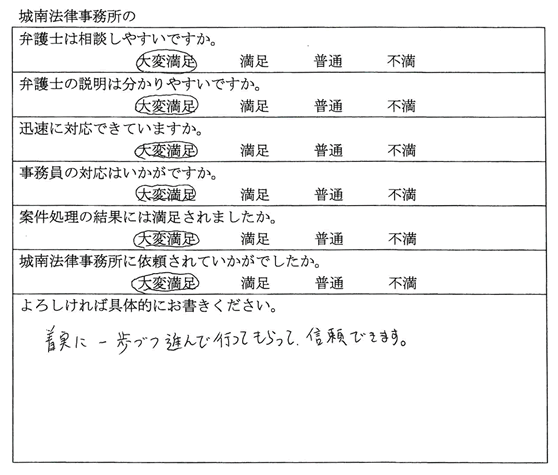 城南法律事務所の
弁護士は相談しやすいですか。
大変満足 満足 普通 不満
弁護士の説明は分かりやすいですか。
大変満足 満足 普通 不満
迅速に対応できていますか。
大変満足 満足 普通 不満
事務員の対応はいかがですか。
大変満足 満足 普通 不満
案件処理の結果には満足されましたか。
大変満足 満足 普通 不満
城南法律事務所に依頼されていかがでしたか。
大変満足 満足 普通 不満
よろしければ具体的にお書きください。
着実に一歩づつ進んで行ってもらって、信頼できます。